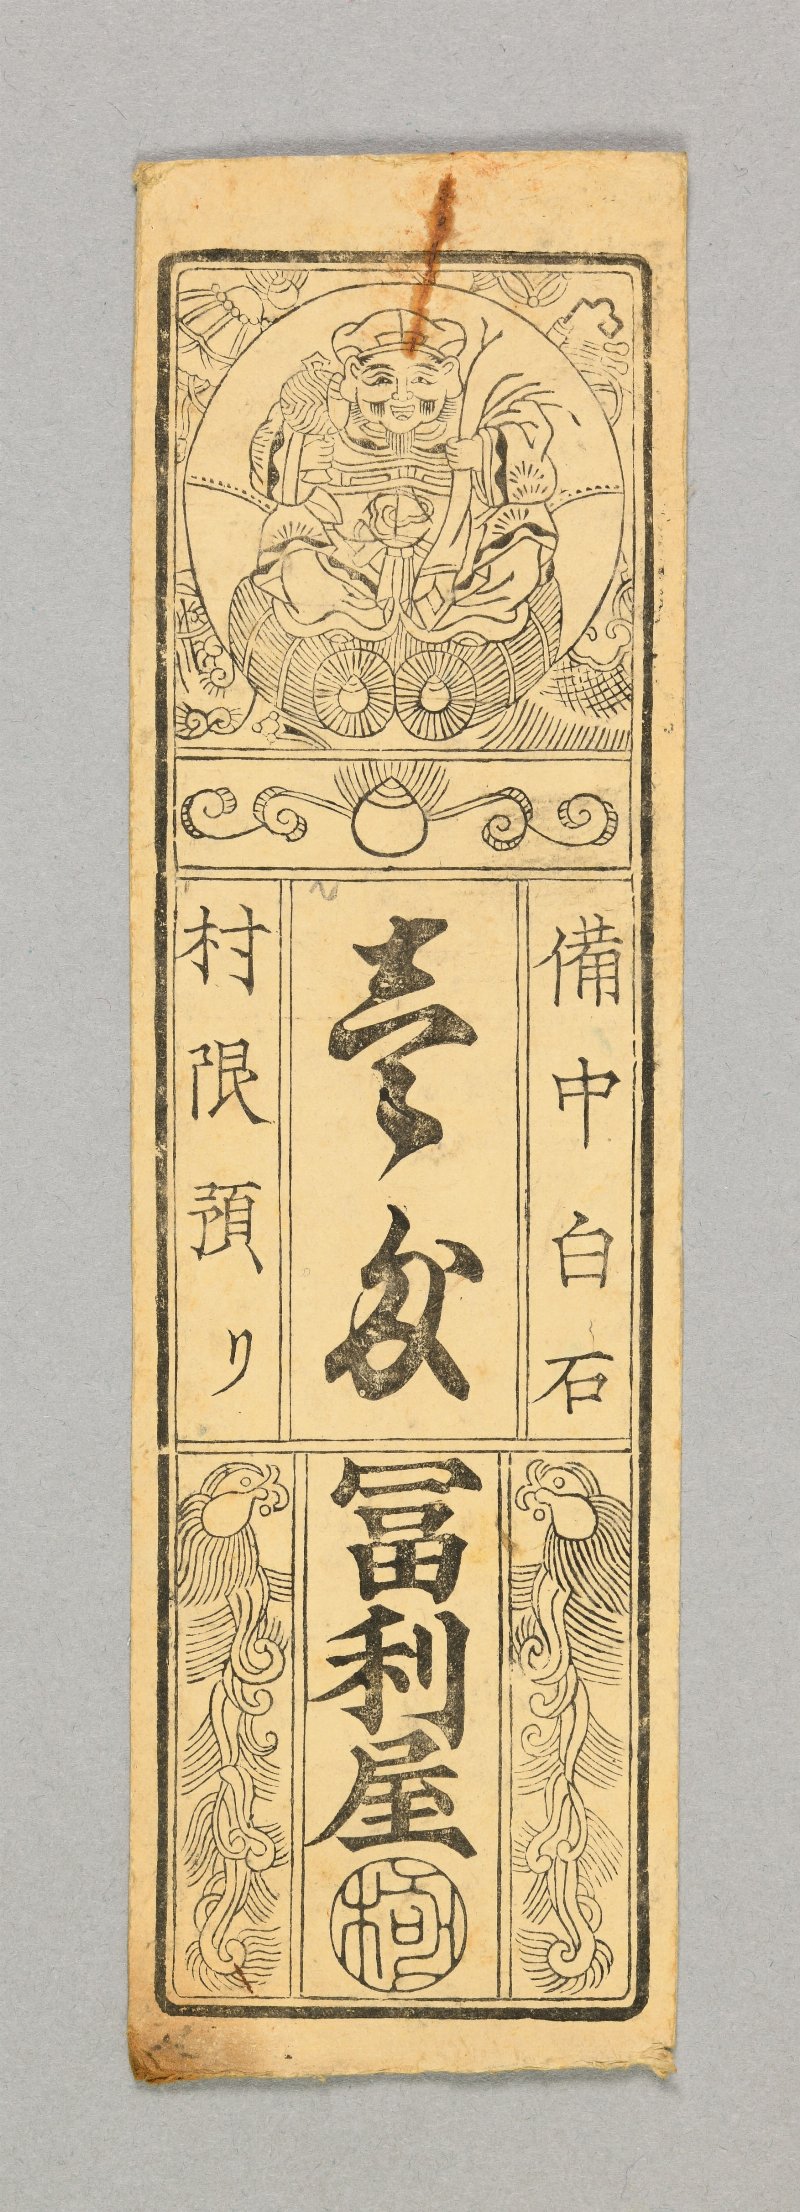 備中白石
壱匁
村限預り
冨利屋